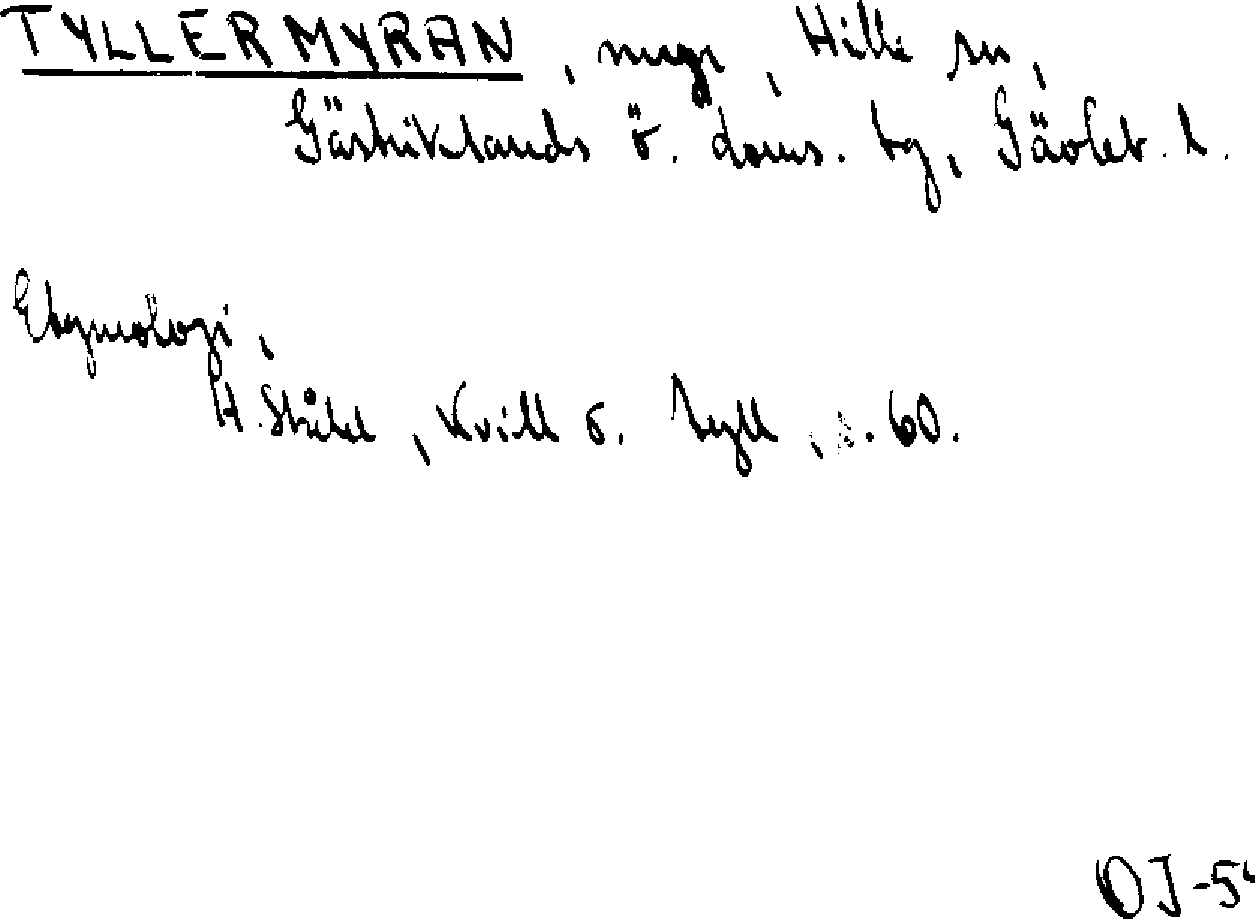 TYLLERMYRAN, myr, Hille sn,
Gästriklands ö. doms. tg, Gävleb. l.
Etymologi,
H. Ståhl, Kvill o. tyll, s. 60.
OJ-5